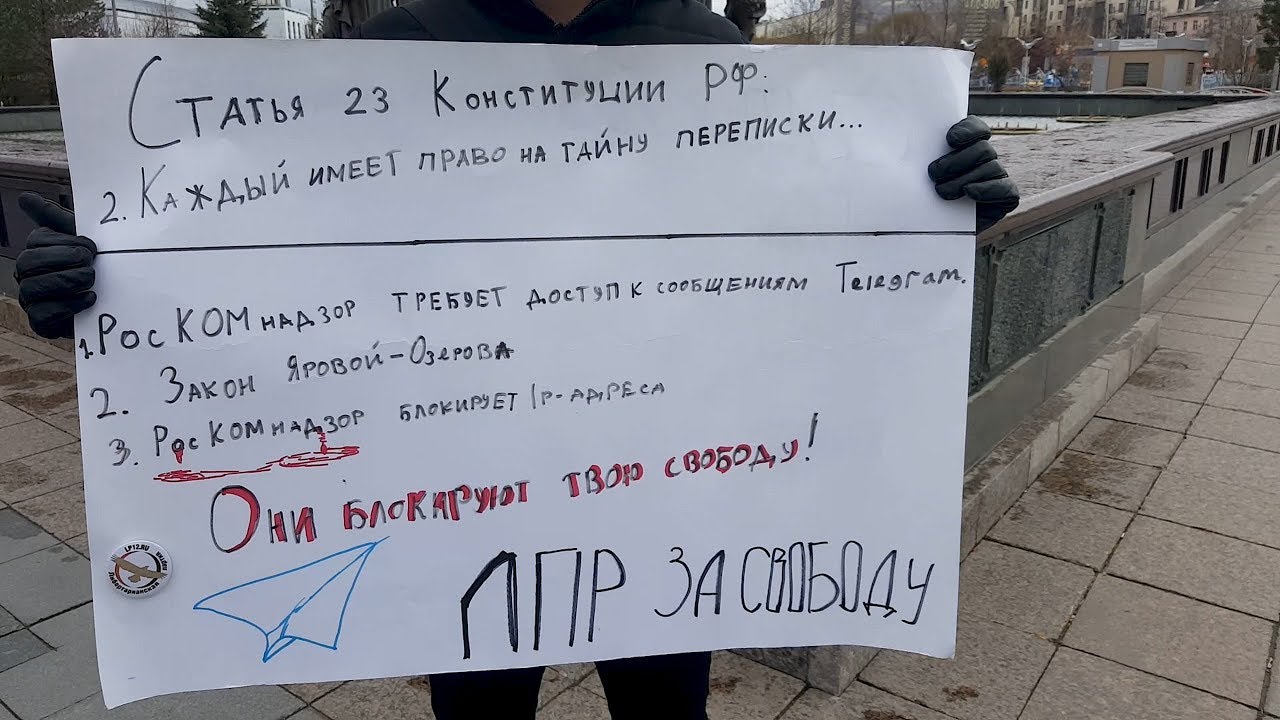 Статья 23 Конституции РФ:
2. Каждый имеет право на тайну переписки...
1. РосКОМнадзор требует доступ к сообщениям Telegram.
2. Закон Яровой-Озерова
3. РосКОМнадзор блокирует Ip-адреса
Они блокируют твою свободу!
LP12.RU
Либертарианская партия
ЛПР ЗА СВОБОДУ